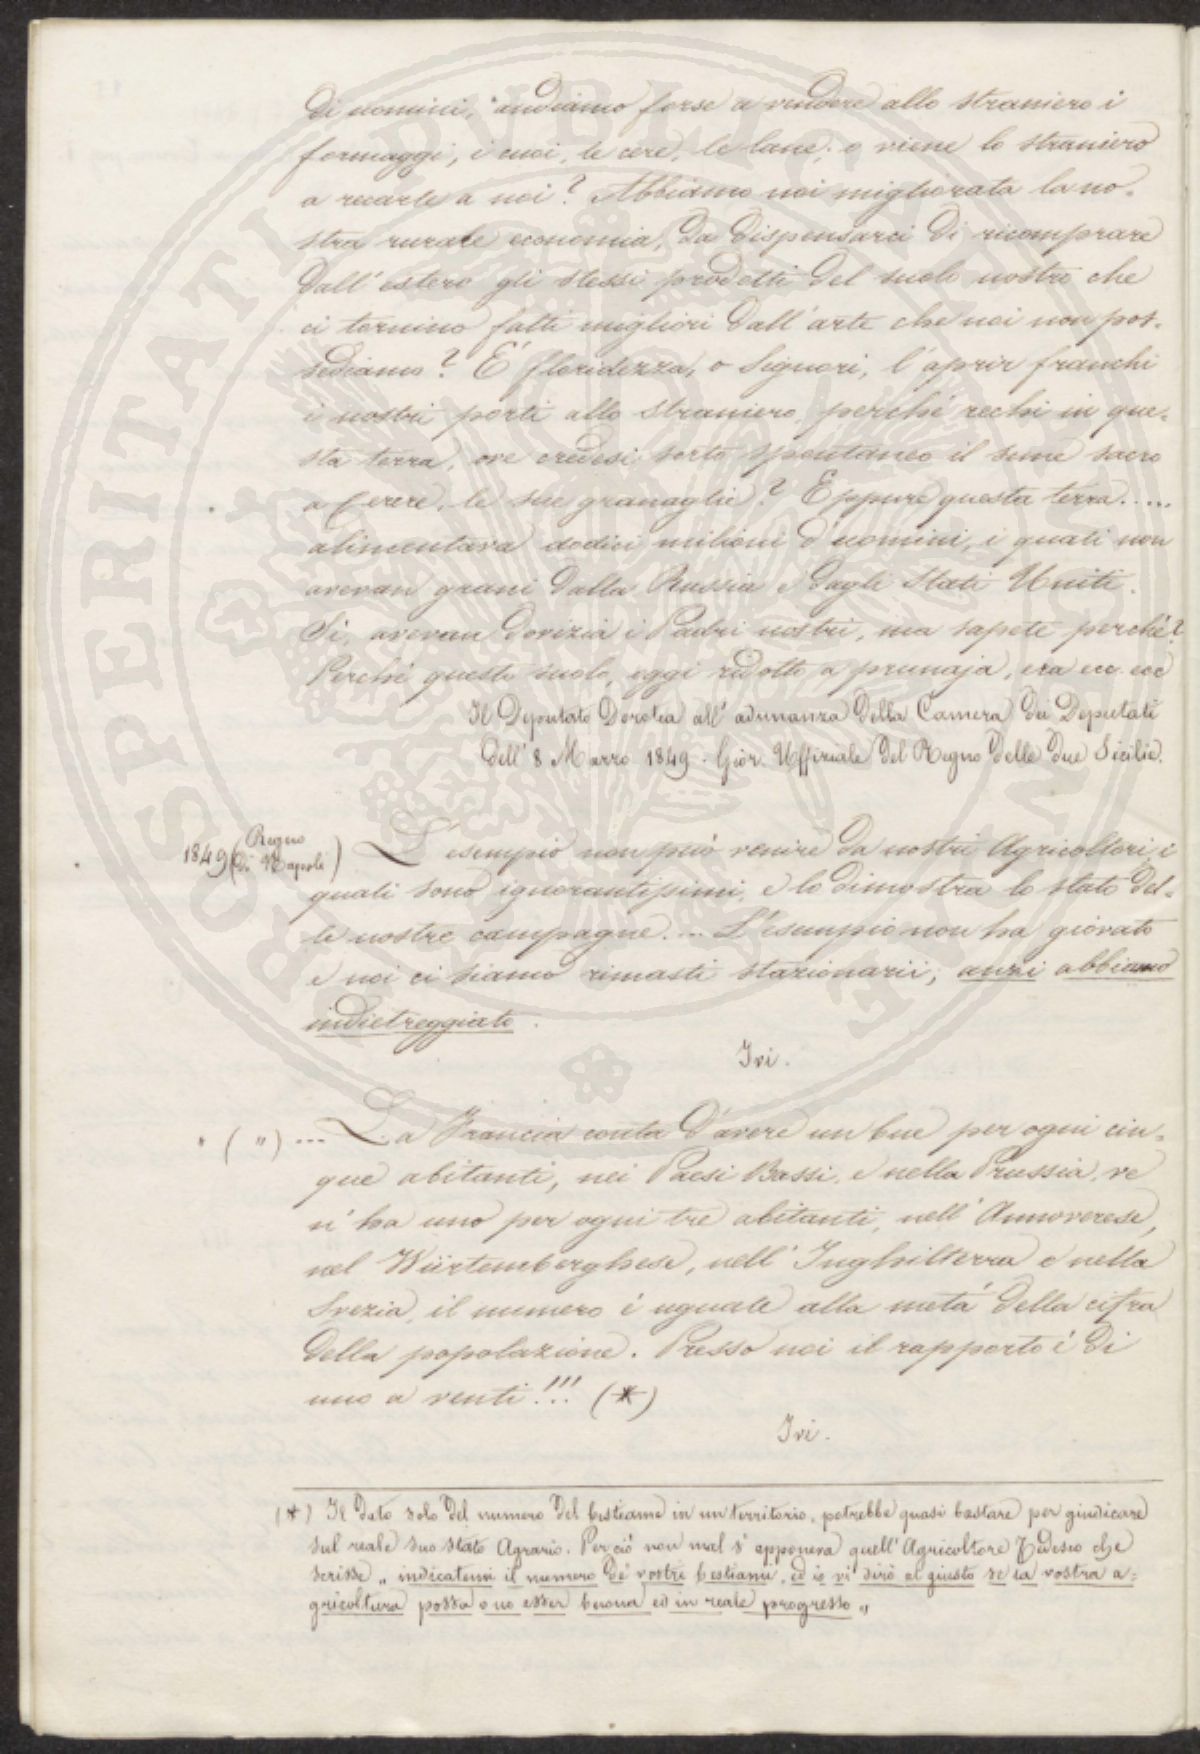 di uomini, andiamo forse a vendere allo straniero i
formaggi, i cuoi, le cere, le lane; o viene lo straniero
a recarle a noi? Abbiamo noi migliorata la no-
stra rurale economia, da dispensarci di ricomprare
dall'estero gli stessi prodotti del suolo nostro che
ci tornino fatti migliori dall'arte che noi non pos-
sediamo? E' floridezza, o Signori, l'aprir franchi
i nostri porti allo straniero, perché rechi in que-
sta terra, ove credesi sorto spontaneo il seme sacro
a Cerere, le sue granaglie? Eppure questa terra.....
alimentava dodici milioni d'uomini, i quali non
avevan grani dalla Russia e dagli Stati Uniti.
Sì, avevan dovizia i Padri nostri, ma sapete perché?
Perché questo suolo, oggi ridotto a prunaja, era ecc. ecc
Il Deputato Dorotea all'adunanza della Camera dei Deputati
dell'8 Marzo 1849. Gior. Uffiziale del Regno delle due Sicilie.
1849 (Regno di Napoli) L'esempio non può venire da nostri Agricoltori, i
quali sono ignorantissimi, e lo dimostra lo stato del-
le nostre campagne.... L'esempio non ha giovato
e noi ci siamo rimasti stazionarii; anzi abbiamo
indietreggiato.
Ivi.
" ( " ) ... La Francia conta d'avere un bue per ogni cin-
que abitanti, nei Paesi Bassi, e nella Prussia, ve
n'ha uno per ogni tre abitanti, nell'Annoverese,
nel Würtemberghese, nell'Inghilterra e nella
Svezia, il numero è uguale alla metà della cifra
della popolazione. Presso noi il rapporto è di
uno a venti!!! (*)
Ivi.
(*) Il dato solo del numero del bestiame in un territorio, potrebbe quasi bastare per giudicare
sul reale suo stato Agrario. Perciò non mal s'apponeva quell'Agricoltore Tedesco che
scrisse „ indicatemi il numero de' vostri bestiami, ed io vi dirò al giusto se la vostra a-
gricoltura possa o no esser buona ed in reale progresso „
PROSPERITATI PVBLICAE AVGENDAE